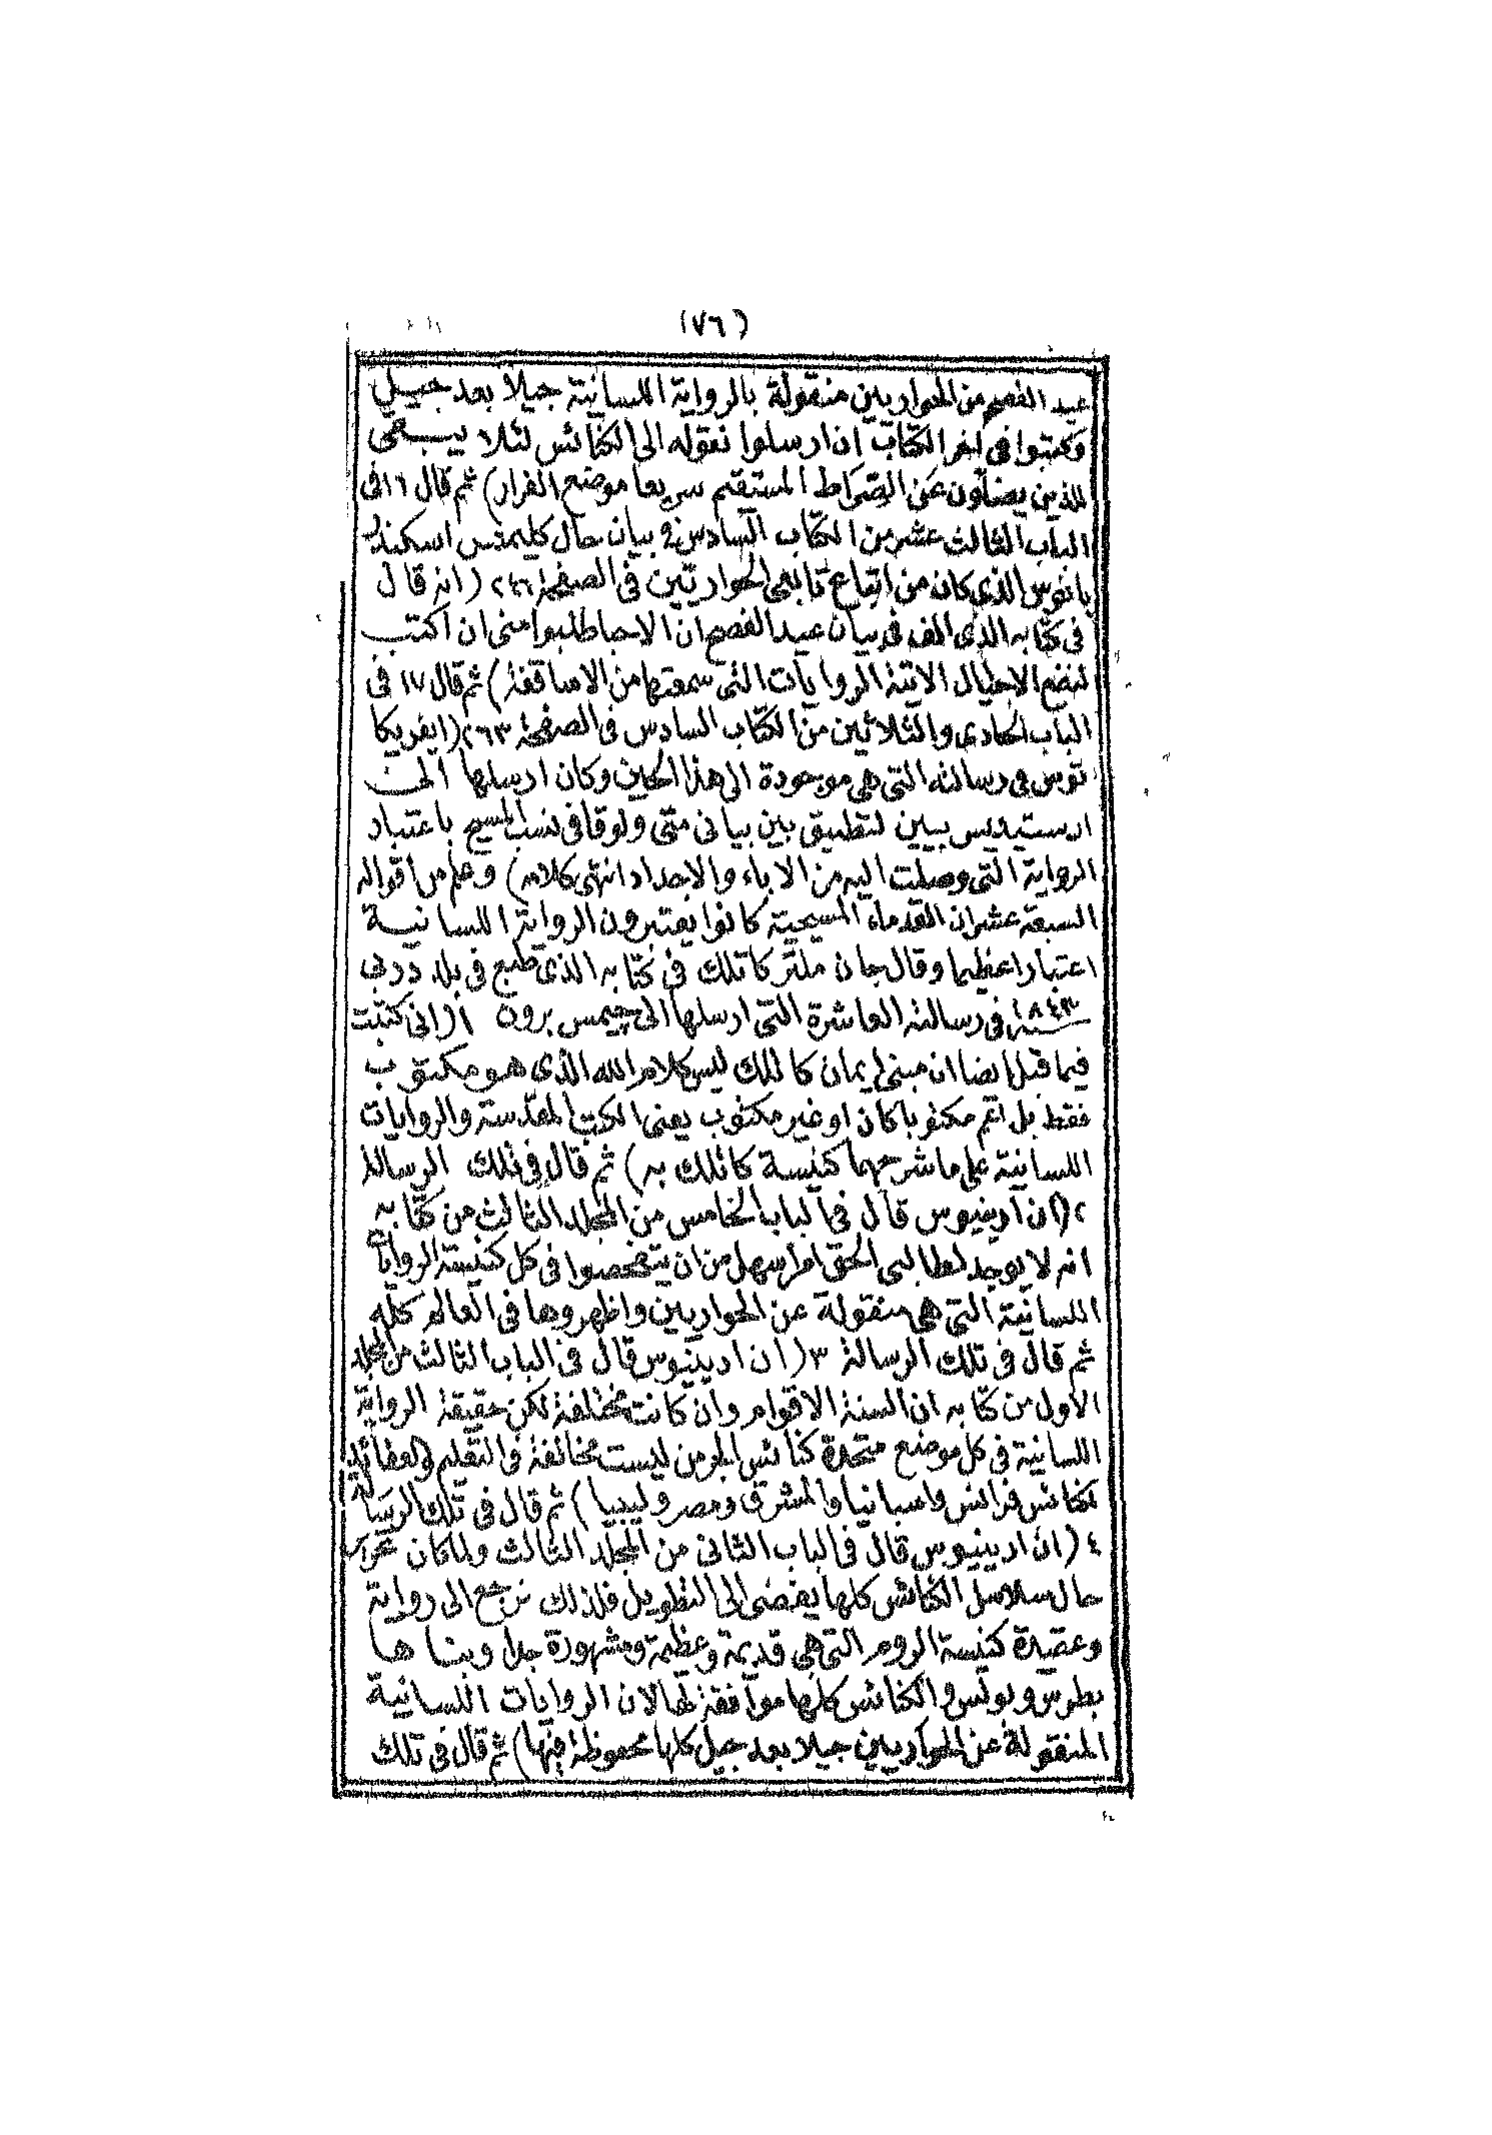 (٧٦)
عيد الفصح من الحواريين منقولة بالرواية اللسانية جيلا بعد جيل
وكتبوا في اخر الكتاب ان ارسلوا نقوله الى الكنائس لئلا يبقى
للذين يضلون عن الصراط المستقيم سريعا موضع الفرار) ثم قال ١٦ في
الباب الثالث عشر من الكتاب السادس في بيان حال كليمنس اسكندر
يانوس الذي كان من اتباع تابعى الحواريين في الصفحة ٢٤٦ (انه قال
في كتابه الذى الف في بيان عيد الفصح ان الاحبا طلبوا منى ان اكتب
لنفع الاجيال الاتية الروايات التى سمعتها من الاساقفة) ثم قال ١٧ فى
الباب الحادى والثلاثين من الكتاب السادس فى الصفحة ٢٦٣ (ايفريكا
نوس في رسالته التى هى موجودة الى هذا الحين وكان ارسلها الى
ارستيديس يبين لتطبيق بين بيانى متى ولوقا فى نسب المسيح باعتبار
الرواية التى وصلت اليه من الاباء والاجداد انتهى كلامه) وعلم من اقواله
السبعة عشر ان القدماء المسيحية كانوا يعتبرون الرواية اللسانية
اعتبارا عظيما وقال جان ملنر كاتلك فى كتابه الذى طبع فى بلد دربى
سنة ١٨٤٣ فى رسالته العاشرة التى ارسلها الى جيمس برون ١ (انى كتبت
فيما قبل ايضا ان مبنى ايمان كاتلك ليس كلام الله الذى هو مكتوب
فقط بل اعم مكتوبا كان او غير مكتوب يعنى الكتب المقدسة والروايات
اللسانية على ما شرحهما كنيسة كاتلك به) ثم قال فى تلك الرسالة
٢ (ان ارينيوس قال فى الباب الخامس من المجلد الثالث من كتابه
انه لا يوجد لطالبى الحق امر اسهل من ان يتفحصوا فى كل كنيسة الروايات
اللسانية التى هى منقولة عن الحواريين واظهروها فى العالم كله
ثم قال فى تلك الرسالة ٣ (ان ارينيوس قال فى الباب الثالث من المجلد
الاول من كتابه ان السنة الاقوام وان كانت مختلفة لكن حقيقة الرواية
اللسانية فى كل موضع متحدة كنائس الجرمن ليست مخالفة فى التعليم والعقائد
لكنائس فرانس واسبانيا والمشرق ومصر وليبيا) ثم قال فى تلك الرسالة
٤ (ان ارينيوس قال فى الباب الثانى من المجلد الثالث ولما كان تحرير
حال سلاسل الكنائس كلها يفضى الى التطويل فلذلك نرجع الى رواية
وعقيدة كنيسة الروم التى هى قديمة وعظيمة ومشهورة جدا وبناها
بطرس وبولس والكنائس كلها موافقة لها لان الروايات اللسانية
المنقولة عن الحواريين جيلا بعد جيل كلها محفوظة فيها) ثم قال فى تلك